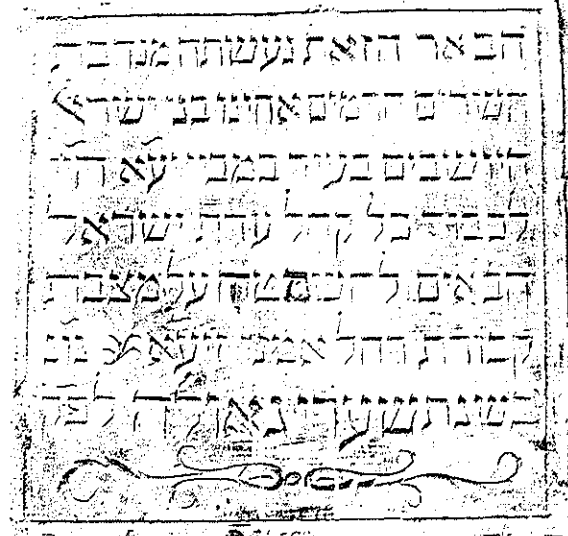 הבאר הזאת נעשתה מנדבת
השרים הרמים אחינו בני ישראל
היושבים בעיר במביי יע״א
לכבוד כל קהל עדת ישראל
הבאים להשתטח על מצבת
קבורת רחל אמנו זיע״א
בשנת